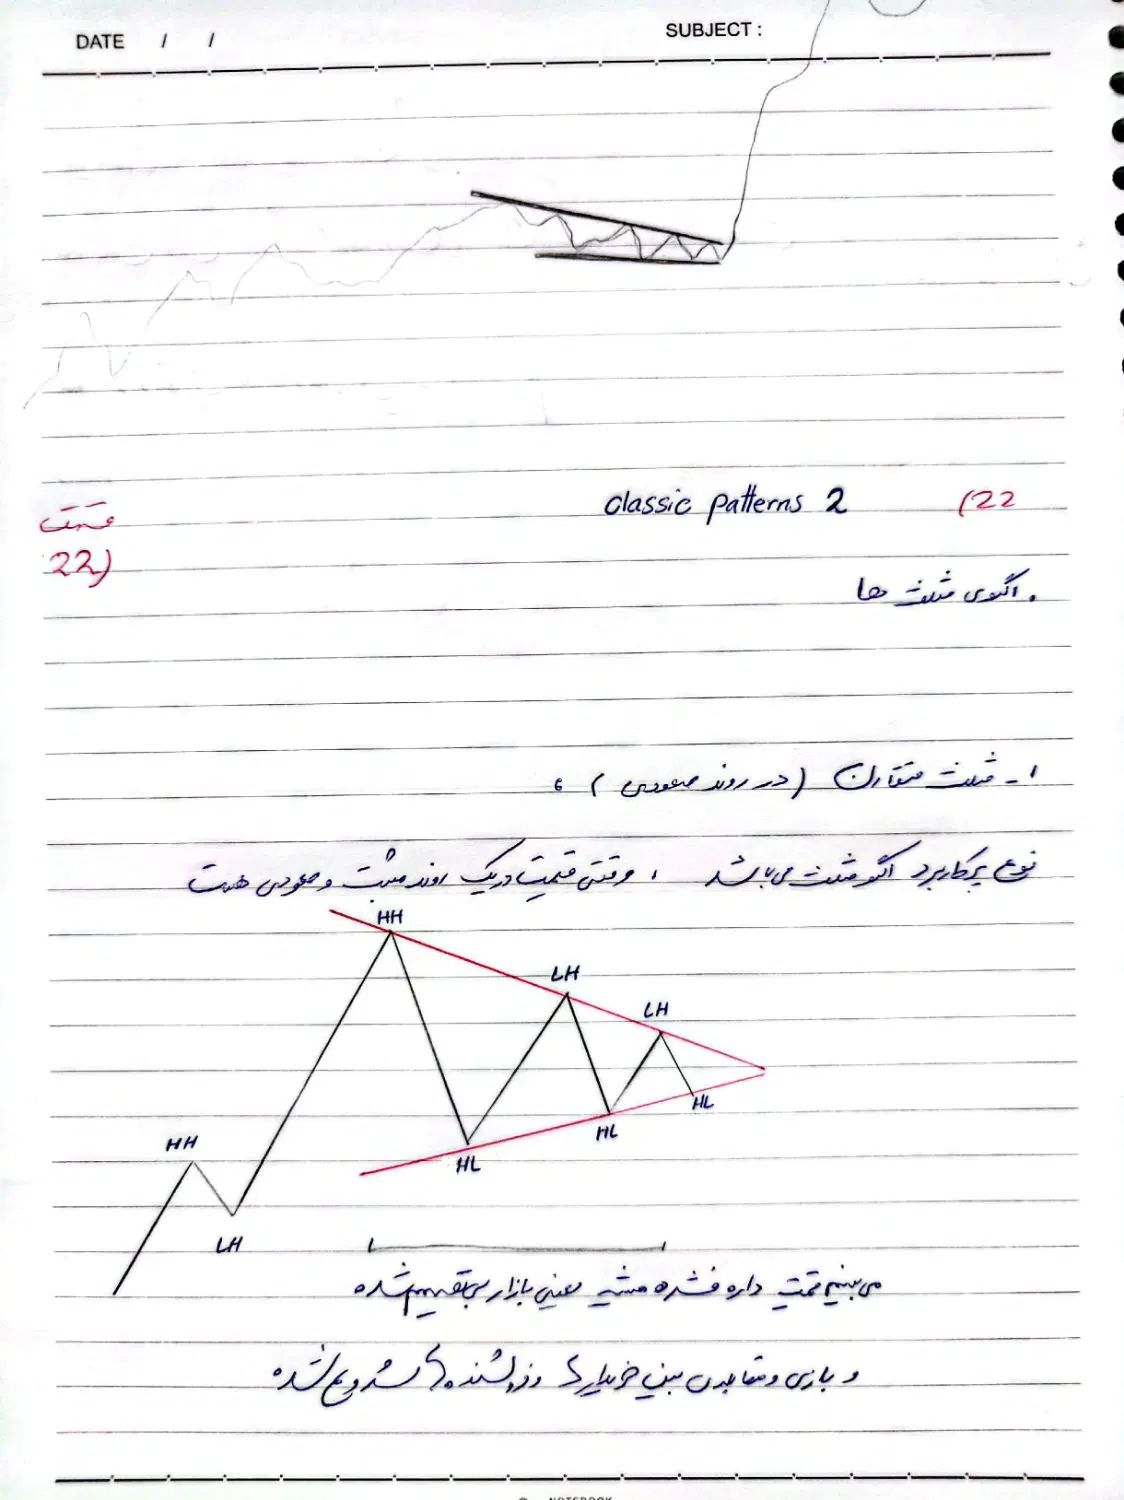 DATE / /
SUBJECT :
classic patterns 2 (22
قسمت
22)
. الگوی مثلث ها
۱- مثلث متقارن (در روند صعودی) :
نوع پرکاربرد الگو مثلث می باشد ، وقتی قیمت در یک روند مثبت و صعودی هست
HH
LH
LH
HL
HL
HH
HL
LH
می بینیم قیمت داره فشرده میشه یعنی بازار بی تصمیم شده
و بازی و مقابله بین خریدارها و فروشنده ها شروع شده
NOTEBOOK